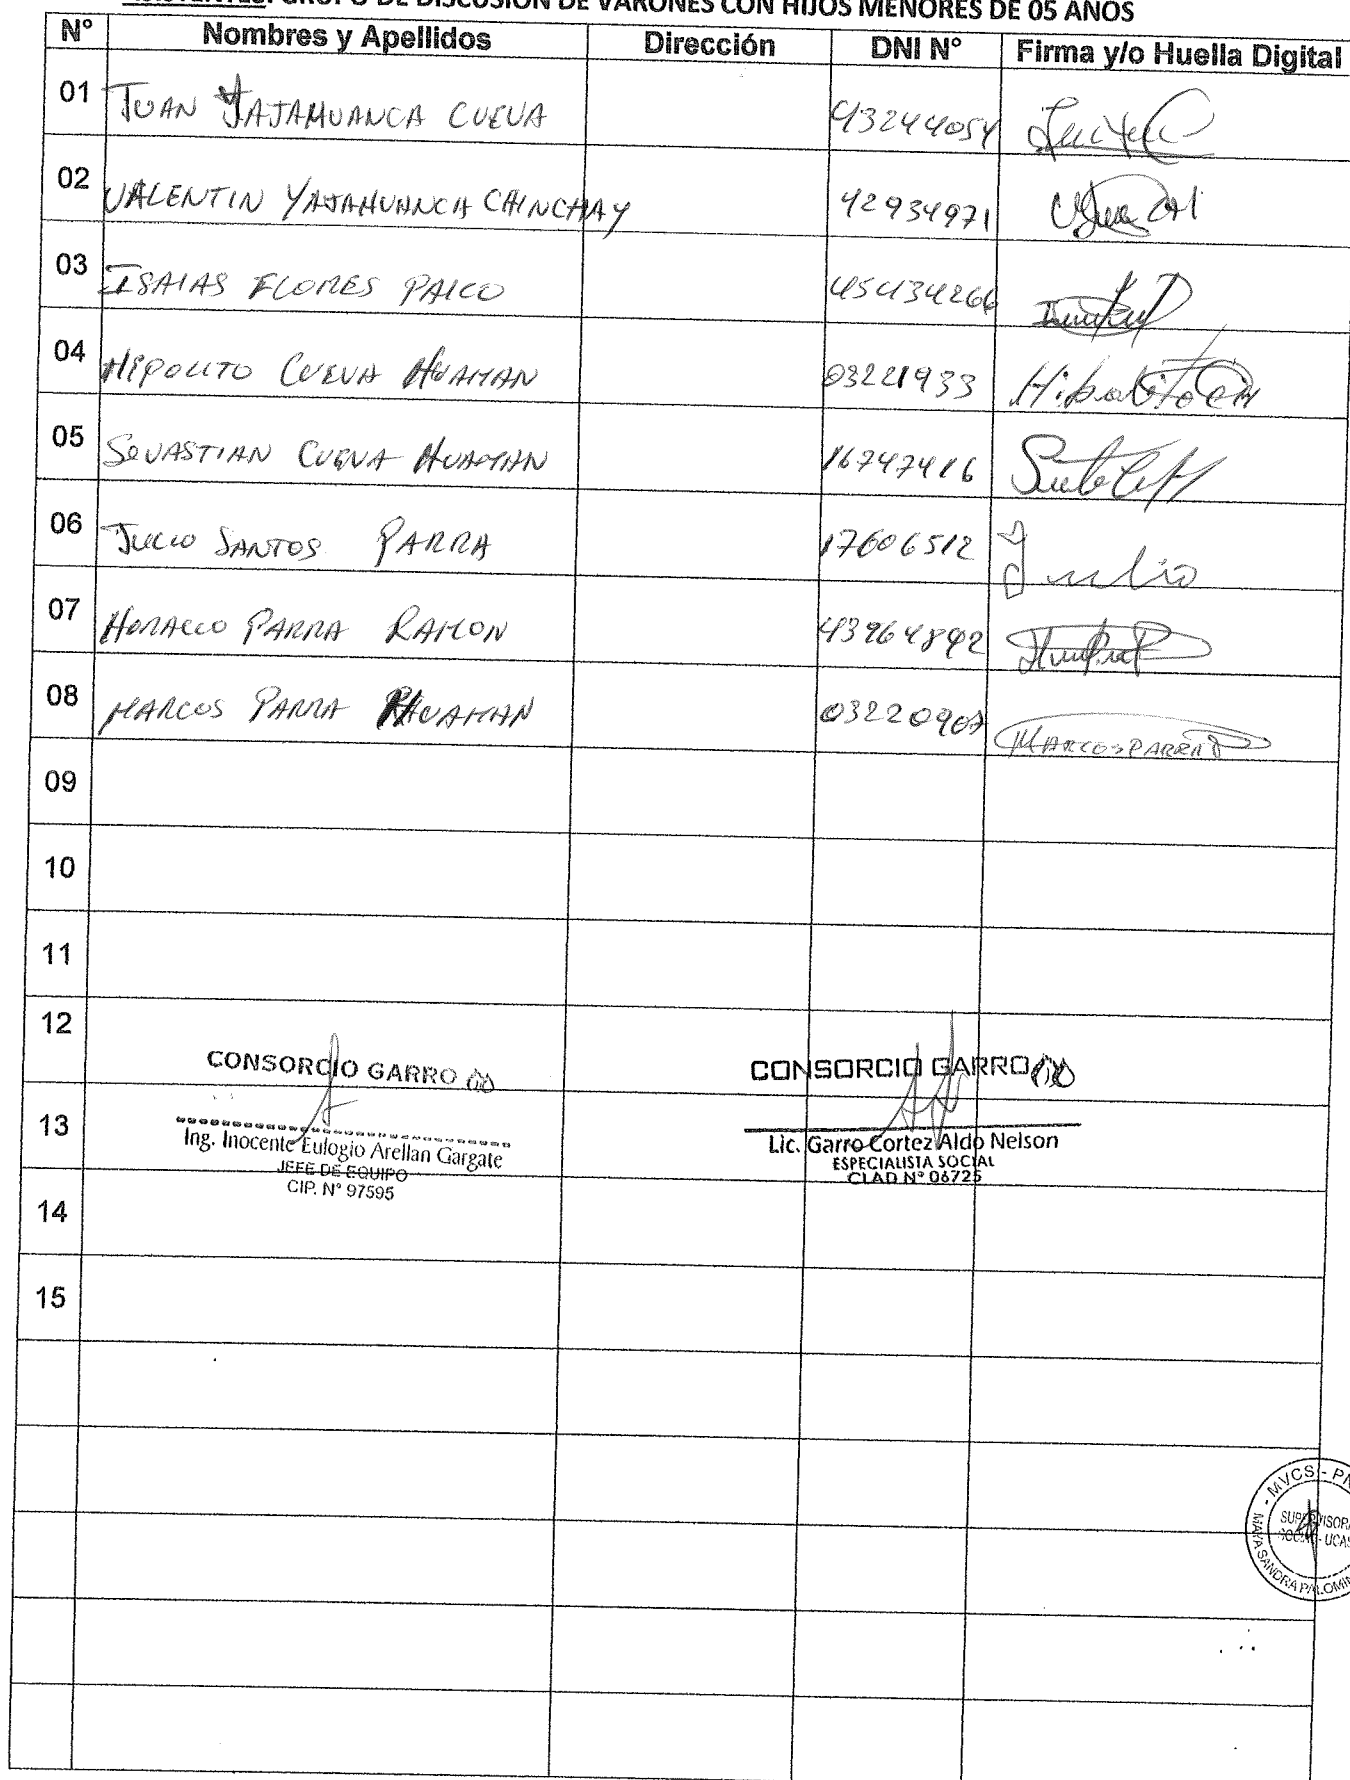 ASISTENTES: GRUPO DE DISCUSIÓN DE VARONES CON HIJOS MENORES DE 05 AÑOS
N° Nombres y Apellidos Dirección DNI N° Firma y/o Huella Digital
01 JUAN YAJAHUANCA CUEVA 43244054
02 VALENTIN YAJAHUANCA CHINCHAY 42934971
03 ISAIAS FLORES PAICO 45434266
04 HIPOLITO CUEVA HUAMAN 03221933 Hipolito CH
05 SEVASTIAN CUEVA HUAMAN 16747416
06 JULIO SANTOS PARRA 17606512 Julio
07 HORACCO PARRA RAMON 43964892
08 MARCOS PARRA HUAMAN 03220907 MARCOS PARRA
09
10
11
12
CONSORCIO GARRO CONSORCIO GARRO
13
Ing. Inocente Eulogio Arellan Gargate Lic. Garro Cortez Aldo Nelson
JEFE DE EQUIPO ESPECIALISTA SOCIAL
CIP. N° 97595 CLAD N° 06725
14
15
- MVCS - PN
SUPERVISORA
SOCIAL - UCAS
MARIA SANDRA PALOMIN